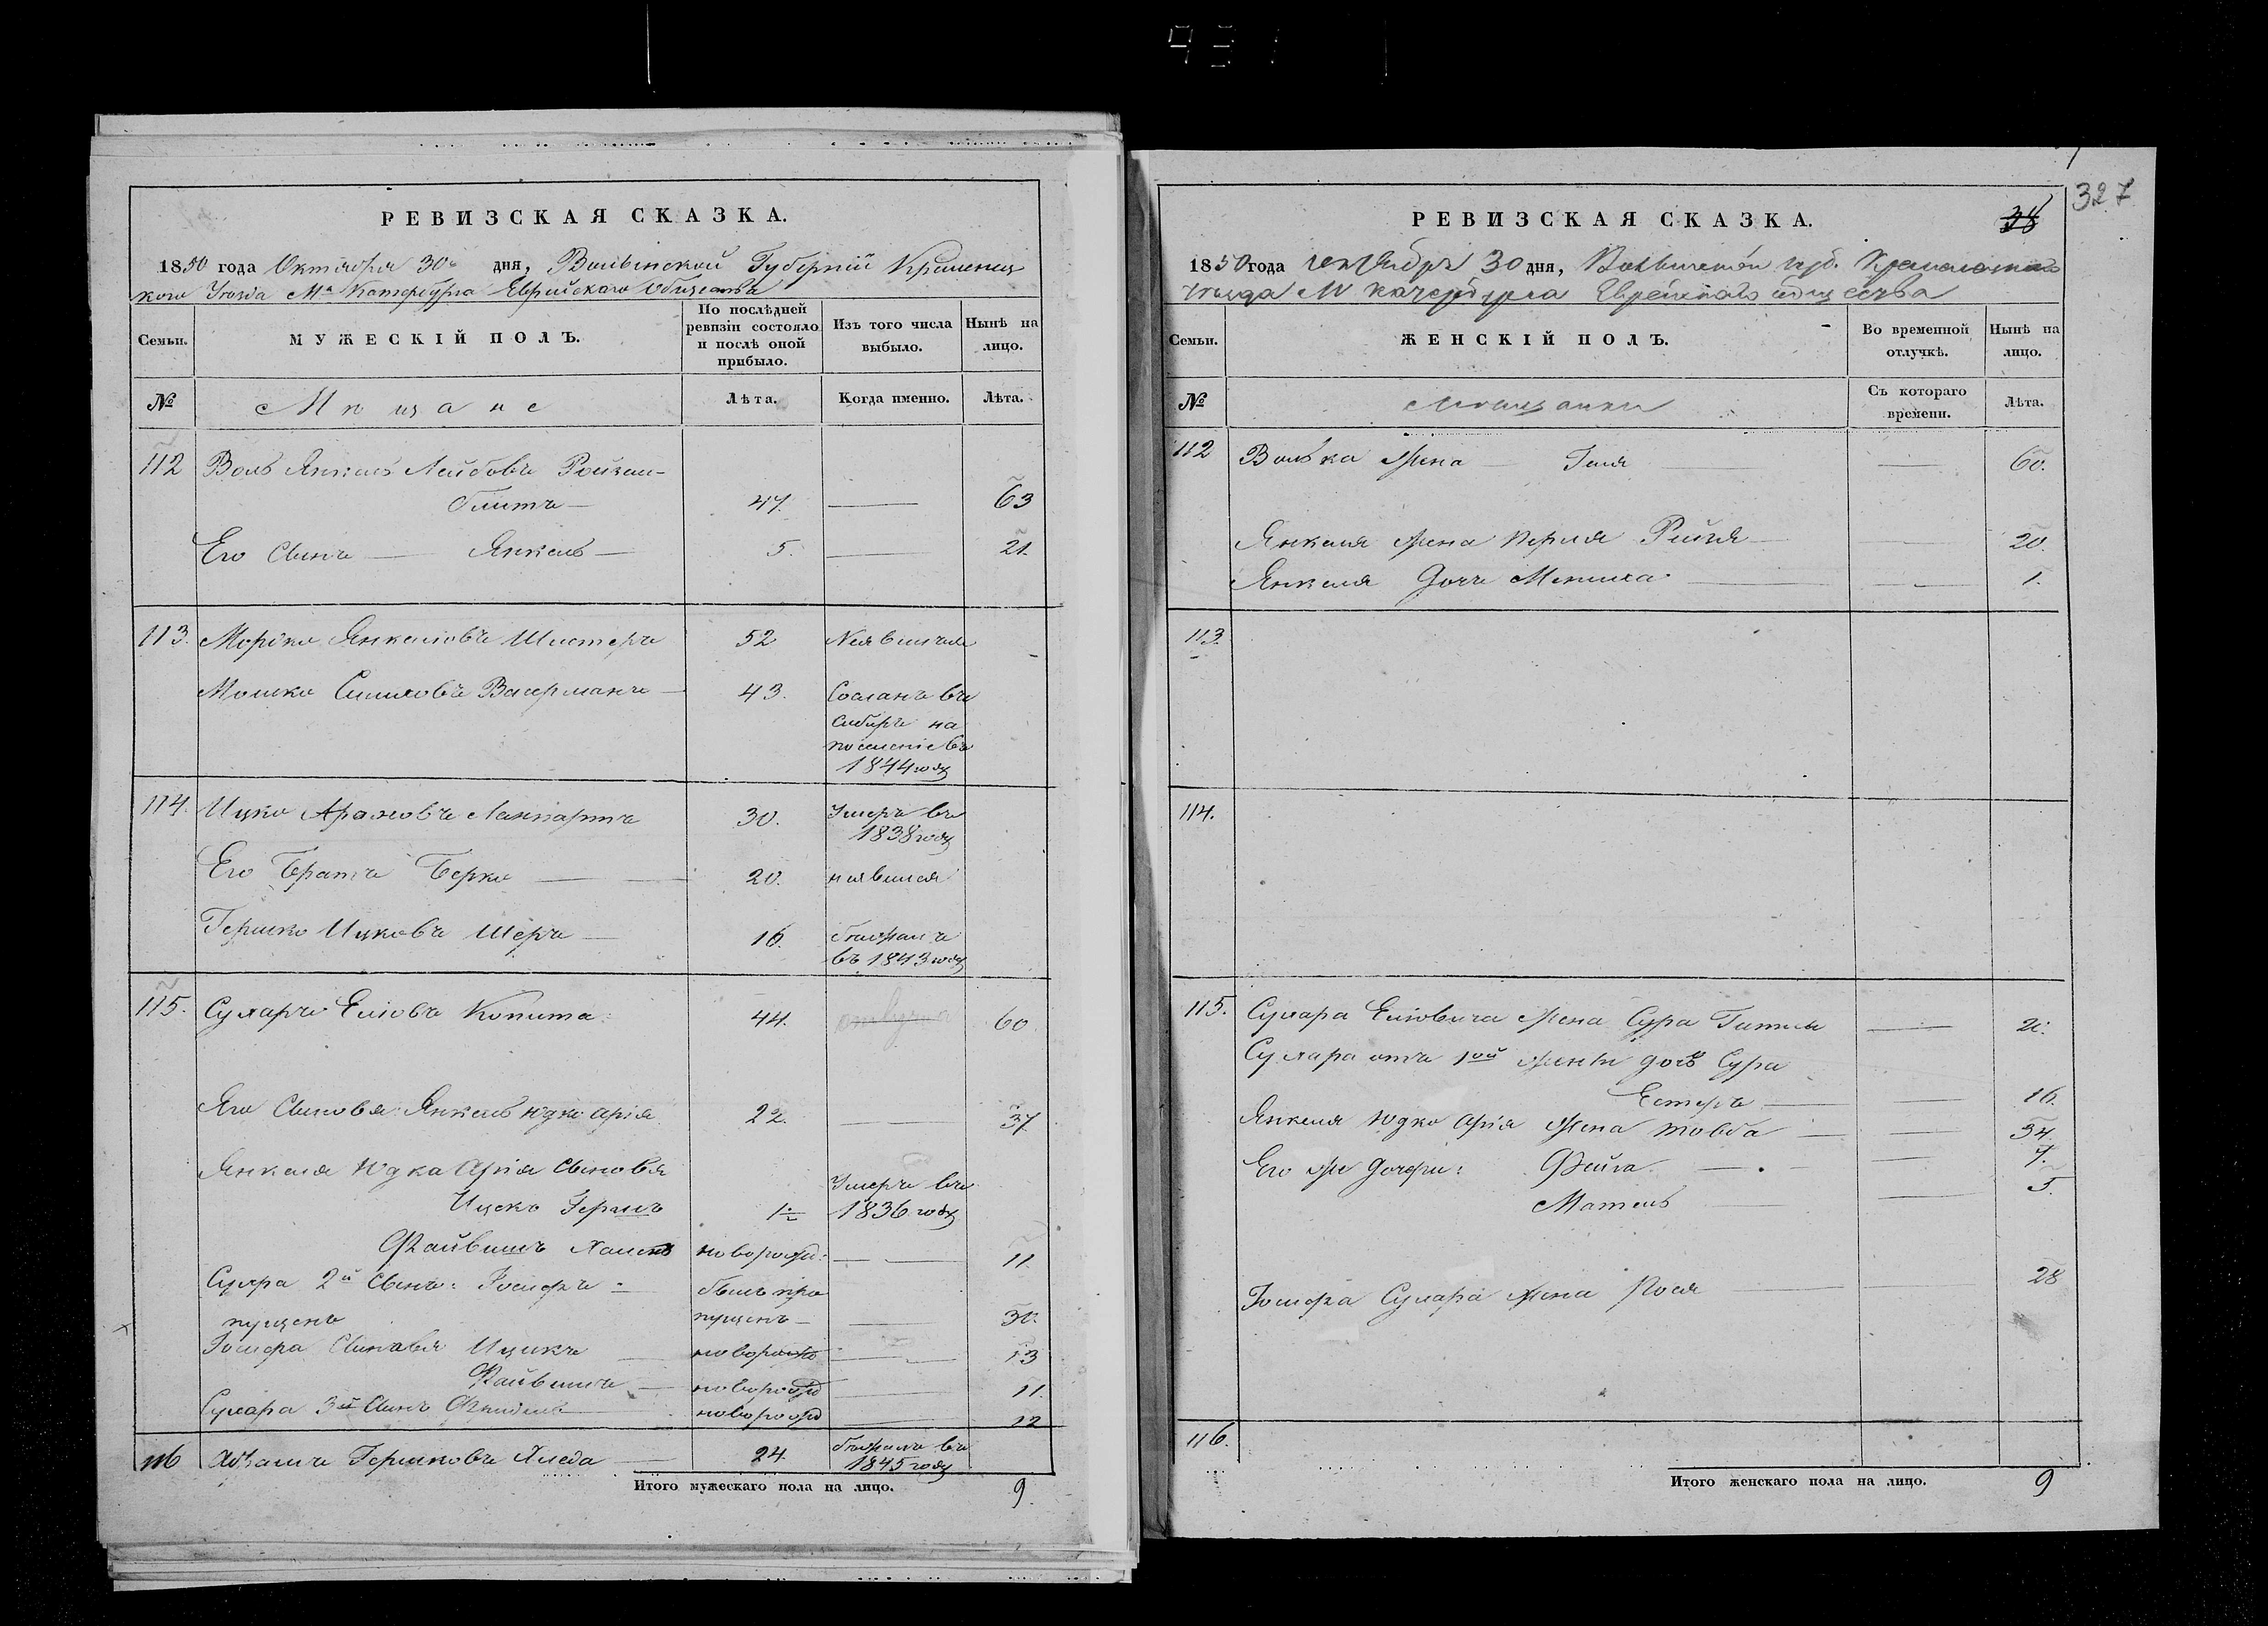 РЕВИЗСКАЯ СКАЗКА.
1850 года Октября 30 дня, Волынской Губерніи Кременец
кого Уезда Мᵃ Катербурга Еврейскаго Общества
Семьи.
МУЖЕСКІЙ ПОЛЪ.
По послѣдней ревизіи состояло и послѣ оной прибыло.
Изъ того числа выбыло.
Нынѣ на лицо.
№
Мещане
Лѣта.
Когда именно.
Лѣта.
112 Воль Янкель Лейбовъ Ройзен-
блитъ 47. 63
Его Сынъ Янкель 5. 21.
113. Мортко Янкеловъ Шистеръ 52 Неявился
Мошко Симховъ Васерманъ 43. Сосланъ въ
Сибирь на
поселеніе въ
1844 году
114. Ицко Ароновъ Ланпартъ 30. Умеръ въ
1838 году
Его Братъ Берко 20. неявился
Гершко Ицковъ Шеръ 16. бѣжалъ
въ 1843 году
115. Сухаръ Еліовъ Копита 44. 60
Его Сыновья: Янкель Юдко Арія 22. 37
Янкеля Юдка Арія Сыновья
Ицско Гершъ 1½ Умеръ въ
1836 году
Файвишъ новорожд: 11.
Сухара 2й Сынъ: Іосифъ былъ про
пущенъ пущенъ 30.
Іосифа Сыновья Ицикъ новорожд 13
Файвишъ новорожд 11.
Сухара 3й Сынъ новорожд 12
116 Гершковъ 24. бѣжалъ въ
1845 году
Итого мужескаго пола на лицо. 9.
327
РЕВИЗСКАЯ СКАЗКА.
38
1850 года октября 30 дня, Волынской губ. Кременецкаго
уезда М Катербурга Еврейскаго общества
Семьи.
ЖЕНСКІЙ ПОЛЪ.
Во временной отлучкѣ.
Нынѣ на лицо.
№
Мещанки
Съ котораго времени.
Лѣта.
112 Волька Жена Гиля 60.
Янкеля Жена Перля Рейзя 20.
Янкеля Дочь 1.
113.
114.
115. Сухара Еліовича Жена Сура Гитля
Сухара отъ 1ой жены дочь Сура
Естеръ 16.
Янкеля Юдко Арія Жена Товба 34
Его же Дочери: Фейга 7.
Матель 5.
Іосифа Сухара жена Рося 28
116.
Итого женскаго пола на лицо. 9